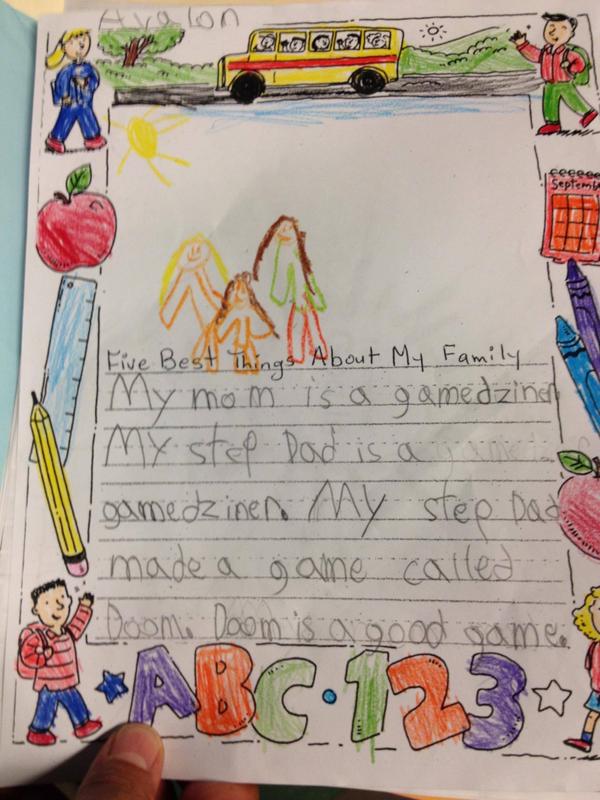 Avalon
September
Five Best Things About My Family
My mom is a gamedziner
My step Dad is a
gamedziner. My step Dad
made a game called
Doom. Doom is a good game.
ABC•123